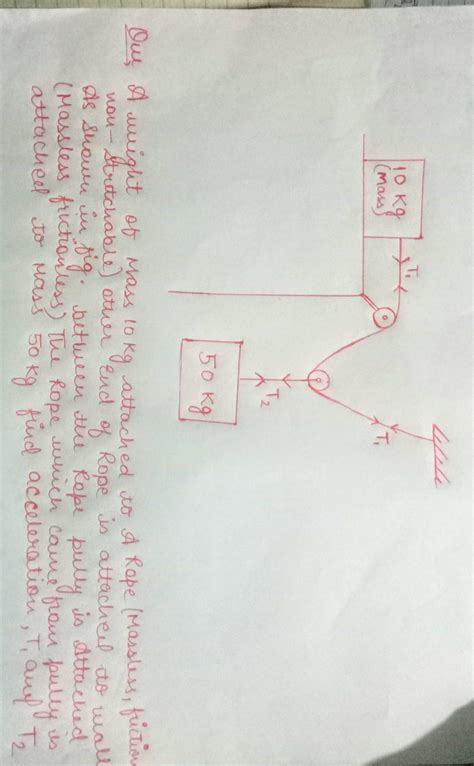 10 kg
(Mass)
T₁
T₁
T₂
50 kg
Que A weight of Mass 10 kg attached to A Rope (Massless, friction
non-stretchable) other end of Rope is attached to wall
As shown in fig. between the Rope pully is Attached
(Massless frictionless) The Rope which came from pully is
attached to Mass 50 kg find acceleration, T₁ and T₂